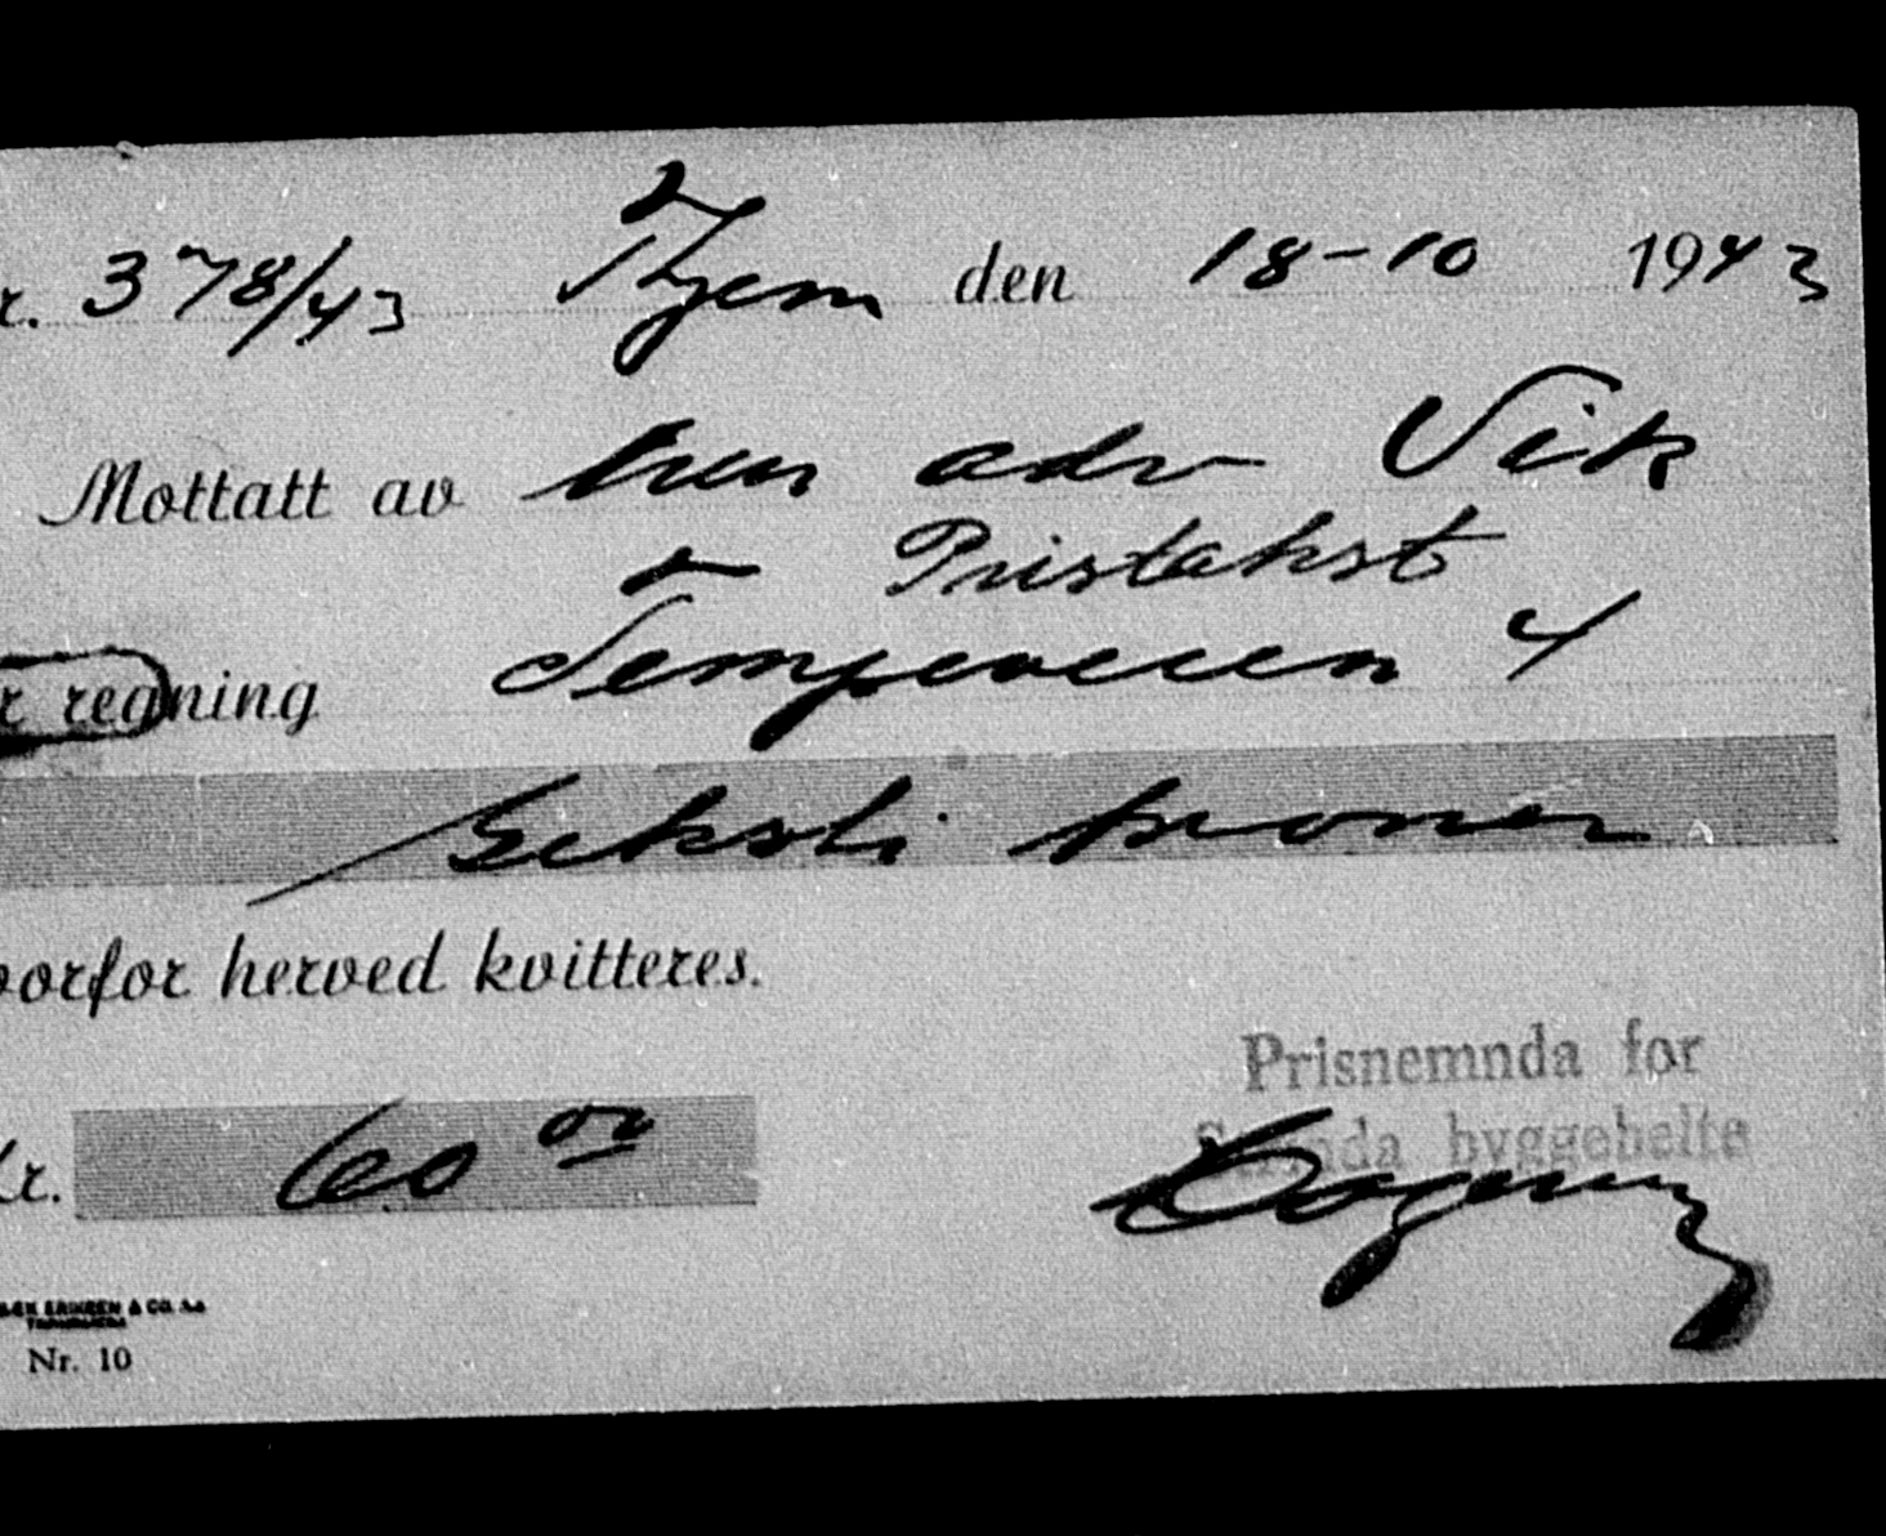 r. 378/43 Thjem den 18-10 1943
Mottatt av herr adv Vik
Pristakst
r regning Tempeveien 4
Seksti kroner
vorfor herved kvitteres.
Prisnemnda for
Strinda byggebelte
kr. 60 00
ERIKSEN & CO. A.s
TRONDHEIM
Nr. 10